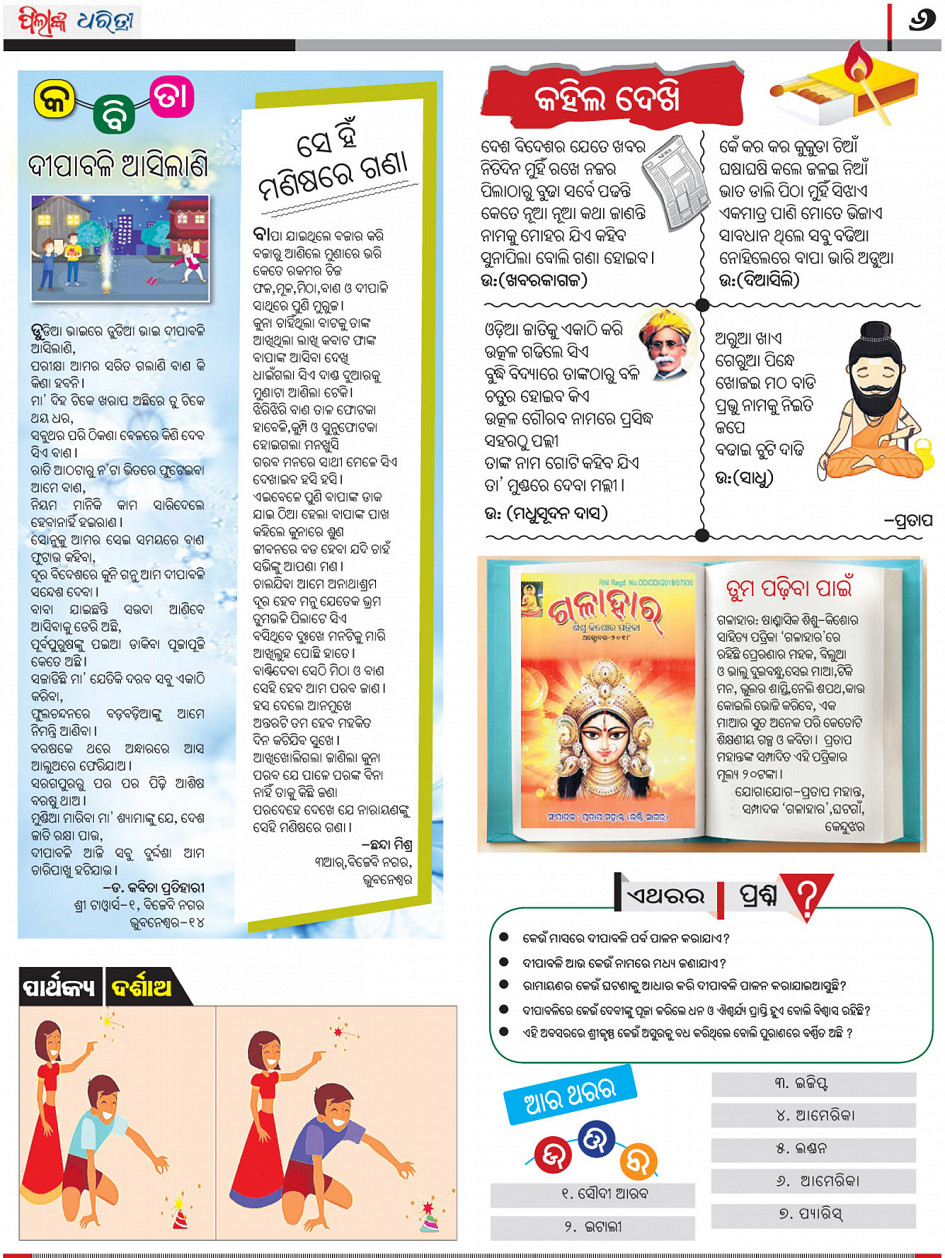 ପିଲାଙ୍କ ଧରିତ୍ରୀ
୬
କବିତା
ଦୀପାବଳି ଆସିଲାଣି
ହୁଡିଆ ଭାଇରେ ହୁଡିଆ ଭାଇ ଦୀପାବଳି
ଆସିଲାଣି,
ପରୀକ୍ଷା ଆମର ସରିତ ଗଲାଣି ବାଣ କି
କିଣା ହବନି ।
ମା' ଦିହ ଟିକେ ଖରାପ ଅଛିରେ ତୁ ଟିକେ
ଥୟ ଧର,
ସବୁଥର ପରି ଠିକଣା ବେଳରେ କିଣି ଦେବ
ସିଏ ବାଣ ।
ରାତି ଆଠଟାରୁ ନ'ଟା ଭିତରେ ଫୁଟେଇବା
ଆମେ ବାଣ,
ନିୟମ ମାନିକି କାମ ସାରିଦେଲେ
ହେବାନାହିଁ ହଇରାଣ ।
ସୋନୁକୁ ଆମର ସେଇ ସମୟରେ ବାଣ
ଫୁଟାଉ କହିବା,
ଦୂର ବିଦେଶରେ କୁନି ଗନୁ ଆମ ଦୀପାବଳି
ସନ୍ଦେଶ ଦେବା ।
ବାବା ଯାଇଛନ୍ତି ସଉଦା ଆଣିବେ
ଆସିବାକୁ ଡେରି ଅଛି,
ପୂର୍ବପୁରୁଷଙ୍କୁ ପଇଆ ଡାକିବା ପୂଜାପୂଜି
କେତେ ଅଛି ।
ସଜାଡିଛି ମା' ଯେତିକି ଦରବ ସବୁ ଏକାଠି
କରିବା,
ଫୁଲଚନ୍ଦନରେ ବଡ଼ବଡ଼ିଆଙ୍କୁ ଆମେ
ନିମନ୍ତି ଆଣିବା ।
ବରଷକେ ଥରେ ଅନ୍ଧାରରେ ଆସ
ଆଲୁଅରେ ଫେରିଯାଅ ।
ସରଗପୁରରୁ ପର ପର ପିଢ଼ି ଆଶିଷ
ବରଷୁ ଥାଅ ।
ମୁଣ୍ଡିଆ ମାରିବା ମା' ଶ୍ୟାମାଙ୍କୁ ଯେ, ଦେଶ
ଜାତି ରକ୍ଷା ପାଉ,
ଦୀପାବଳି ଆଜି ସବୁ ଦୁର୍ଦ୍ଦଶା ଆମ
ଚାରିପାଖୁ ହଟିଯାଉ ।
–ଡ. କବିତା ପ୍ରତିହାରୀ
ଶ୍ରୀ ଟାୱାର୍ସ–୧, ବିଜେବି ନଗର
ଭୁବନେଶ୍ୱର–୧୪
ସେ ହିଁ
ମଣିଷରେ ଗଣା
ବାପା ଯାଇଥିଲେ ବଜାର କରି
ବଜାରୁ ଆଣିଲେ ମୁଣାରେ ଭରି
କେତେ ରକମର ଚିଜ
ଫଳ,ମୂଳ,ମିଠା,ବାଣ ଓ ଦୀପାଳି
ସାଥିରେ ପୁଣି ମୁରୁଜ ।
କୁନା ଚାହିଁଥିଲା ବାଟକୁ ତାଙ୍କ
ଆଖିଥିଲା ଲାଖି କବାଟ ଫାଙ୍କ
ବାପାଙ୍କ ଆସିବା ଦେଖି
ଧାଇଁଗଲା ସିଏ ଦାଣ୍ଡ ଦୁଆରକୁ
ମୁଣାଟା ଆଣିଲା ଟେକି ।
ଝିରିଝିରି ବାଣ ତାଳ ଫୋଟକା
ହାବେଳି,କୁମ୍ପି ଓ ସୁନୁଫୋଟକା
ହୋଇଗଲା ମନଖୁସି
ଗରବ ମନରେ ସାଥୀ ମେଳେ ସିଏ
ଦେଖାଇବ ହସି ହସି ।
ଏଇବେଳେ ପୁଣି ବାପାଙ୍କ ଡାକ
ଯାଇ ଠିଆ ହେଲା ବାପାଙ୍କ ପାଖ
କହିଲେ କୁନାରେ ଶୁଣ
ଜୀବନରେ ବଡ ହେବା ଯଦି ଚାହଁ
ସଭିଙ୍କୁ ଆପଣା ମଣ ।
ଚାଲଯିବା ଆମେ ଅନାଥାଶ୍ରମ
ଦୂର ହେବ ମନୁ ଯେତେକ ଭ୍ରମ
ତୁମଭଳି ପିଲାଟେ ସିଏ
ବସିଥିବେ ଦୁଃଖେ ମନଟିକୁ ମାରି
ଆଖିଲୁହ ପୋଛି ହାତେ ।
ବାଣ୍ଟିଦେବା ସେଠି ମିଠା ଓ ବାଣ
ସେହି ହେବ ଆମ ପରବ ଜାଣ ।
ହସ ଦେଲେ ଆନମୁଖେ
ଅନ୍ତରଟି ତମ ହେବ ମହକିତ
ଦିନ କଟିଯିବ ସୁଖେ ।
ଆଖିଖୋଲିଗଲା ଜାଣିଲା କୁନା
ପରବ ଯେ ପାଳେ ପରଙ୍କ ବିନା
ନାହିଁ ତାକୁ କିଛି ଜଣା
ପରଦେହେ ଦେଖେ ଯେ ନାରାୟଣଙ୍କୁ
ସେହି ମଣିଷରେ ଗଣା ।
–ଛନ୍ଦା ମିଶ୍ର
୩ଆର୍,ବିଜେବି ନଗର,
ଭୁବନେଶ୍ୱର
ପାର୍ଥକ୍ୟ ଦର୍ଶାଅ
କହିଲ ଦେଖି
ଦେଶ ବିଦେଶର ଯେତେ ଖବର
ନିତିଦିନ ମୁହିଁ ରଖେ ନଜର
ପିଲାଠାରୁ ବୁଢା ସର୍ବେ ପଢନ୍ତି
କେତେ ନୂଆ ନୂଆ କଥା ଜାଣନ୍ତି
ନାମକୁ ମୋହର ଯିଏ କହିବ
ସୁନାପିଲା ବୋଲି ଗଣା ହୋଇବ ।
ଉ:(ଖବରକାଗଜ)
NEWS
କେଁ କର କର କୁକୁଡା ଚିଆଁ
ଘଷାଘଷି କଲେ ଜଳଇ ନିଆଁ
ଭାତ ଡାଲି ପିଠା ମୁହିଁ ସିଝାଏ
ଏକମାତ୍ର ପାଣି ମୋତେ ଭିଜାଏ
ସାବଧାନ ଥିଲେ ସବୁ ବଢିଆ
ନୋହିଲେରେ ବାପା ଭାରି ଅଡୁଆ
ଉ:(ଦିଆସିଲି)
ଓଡ଼ିଆ ଜାତିକୁ ଏକାଠି କରି
ଉତ୍କଳ ଗଢିଲେ ସିଏ
ବୁଦ୍ଧି ବିଦ୍ୟାରେ ତାଙ୍କଠାରୁ ବଳି
ଚତୁର ହୋଇବ କିଏ
ଉତ୍କଳ ଗୌରବ ନାମରେ ପ୍ରସିଦ୍ଧ
ସହରଠୁ ପଲ୍ଲୀ
ତାଙ୍କ ନାମ ଗୋଟି କହିବ ଯିଏ
ତା' ମୁଣ୍ଡରେ ଦେବା ମଲ୍ଲୀ ।
ଉ: (ମଧୁସୂଦନ ଦାସ)
ଅରୁଆ ଖାଏ
ଗେରୁଆ ପିନ୍ଧେ
ଖୋଜଇ ମଠ ବାଡି
ପ୍ରଭୁ ନାମକୁ ନିଇତି
ଜପେ
ବଢାଇ ଚୁଟି ଦାଢି
ଉ:(ସାଧୁ)
–ପ୍ରତାପ
RNI Regd. No.ODIODI/2018/07930
ଗଳାହାର
ଶିଶୁ କିଶୋର ପତ୍ରିକା
ଅକ୍ଟୋବର-୨୦୧୮
ସମ୍ପାଦକ : ପ୍ରତାପ ମହାନ୍ତ
ତୁମ ପଢ଼ିବା ପାଇଁ
ଗଳାହାର: ଷାଣ୍ମାସିକ ଶିଶୁ–କିଶୋର
ସାହିତ୍ୟ ପତ୍ରିକା 'ଗଳାହାର'ରେ
ରହିଛି ପ୍ରେରଣାର ମହକ, ବିଲୁଆ
ଓ ଭାଲୁ ଦୁଇବନ୍ଧୁ,ସେଇ ମାଆ,ଟିକି
ମନ, ଭୁଲର ଶାସ୍ତି,ନେଲି ଶପଥ,କାଉ
କୋଇଲି ଭୋଜି କରିବେ, ଏକ
ମାଆର ସୁତ ଅନେକ ପରି କେତୋଟି
ଶିକ୍ଷଣୀୟ ଗଳ୍ପ ଓ କବିତା । ପ୍ରତାପ
ମହାନ୍ତଙ୍କ ସମ୍ପାଦିତ ଏହି ପତ୍ରିକାର
ମୂଲ୍ୟ ୨୦ଟଙ୍କା ।
ଯୋଗାଯୋଗ–ପ୍ରତାପ ମହାନ୍ତ,
ସମ୍ପାଦକ 'ଗଳାହାର',ଘଟଗାଁ,
କେନ୍ଦୁଝର
ଏଥରର ପ୍ରଶ୍ନ ?
● କେଉଁ ମାସରେ ଦୀପାବଳି ପର୍ବ ପାଳନ କରାଯାଏ ?
● ଦୀପାବଳି ଆଉ କେଉଁ ନାମରେ ମଧ୍ୟ ଜଣାଯାଏ ?
● ରାମାୟଣର କେଉଁ ଘଟଣାକୁ ଆଧାର କରି ଦୀପାବଳି ପାଳନ କରାଯାଇଆସୁଛି?
● ଦୀପାବଳିରେ କେଉଁ ଦେବୀଙ୍କୁ ପୂଜା କରିଲେ ଧନ ଓ ଐଶ୍ୱର୍ଯ୍ୟ ପ୍ରାପ୍ତି ହୁଏ ବୋଲି ବିଶ୍ୱାସ ରହିଛି?
● ଏହି ଅବସରରେ ଶ୍ରୀକୃଷ୍ଣ କେଉଁ ଅସୁରକୁ ବଧ କରିଥିଲେ ବୋଲି ପୁରାଣରେ ବର୍ଣ୍ଣିତ ଅଛି ?
ଆର ଥରର
ଉତ୍ତର
୧. ସୌଦୀ ଆରବ
୨. ଇଟାଲୀ
୩. ଇଜିପ୍ଟ
୪. ଆମେରିକା
୫. ଲଣ୍ଡନ
୬. ଆମେରିକା
୭. ପ୍ୟାରିସ୍